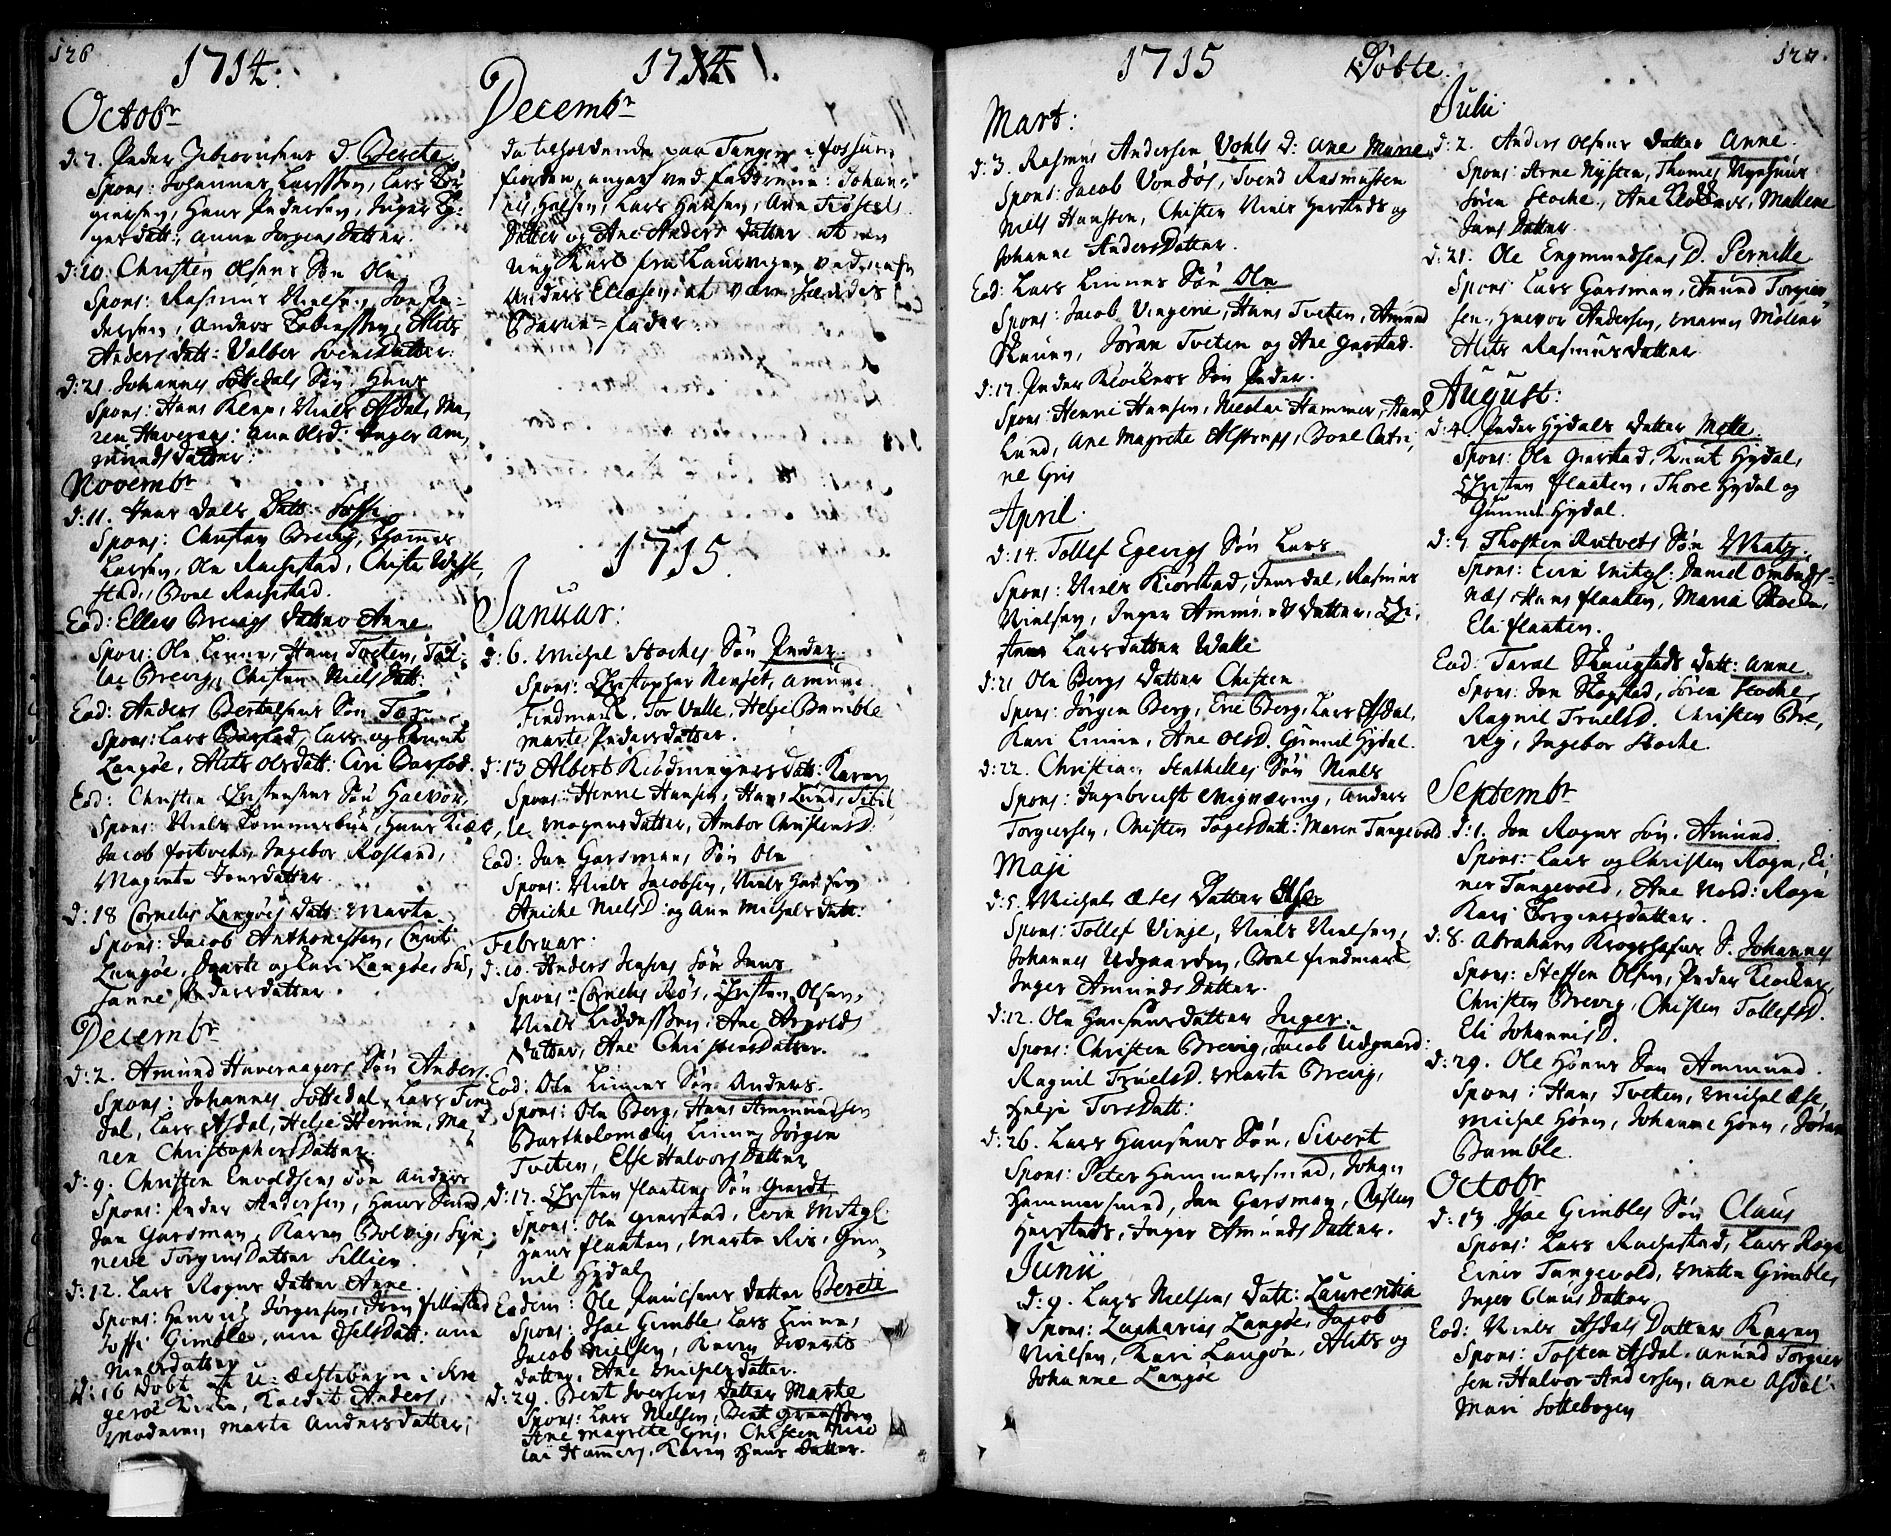 126
1714.
Octobr
d: 7. Peder D. Berete
Spons: Johannes Larssen, Lars Tor
giersen, Hans Pedersen, Inger Tor
gersdatt: Anne Jørgens Datter.
d: 10. Christen Olsens Søn Ole
Spons: Rasmus Nielsen, Jon Pe-
dersen, Anders Alits
Anders datt: Valber Svens Datter.
d: 21. Johannes Søttedals Søn Hans
Spons: Hans Klep, Niels Asdal, Ma,
ren Haveraas: Ane Olsd: Inger Am,
munds datter.
Novembr
d: 11. Jens Dals Datt:
Spons: Christen Brevig, Thomes
Larsen, Ole Rachestad, Christe
stad, Boel Rachestad.
Eod: Ellevs Brevigs Datter Anne
Spons: Ole Linne, Hans Tveten, Tol-
lac Brevig, Chisten Niels Datt:
Eod: Anders Bertelsens Søn Tor
Spons: Lars Barstad, Lars og Knut
Langøe, Alits Olsdatt: Siri Barstad.
Eod: Christen Christensens Søn Halvor,
Spons: Niels Hans
Jacob Ingebor Rosland,
Magrete Jensdatter.
d: 18 Cornelis Langøes Datt: Marte
Spons: Jacob Anthonissen, Cnut
Langøe, Marte og Kari Langøe, Su,
sanne Peders datter.
Decembr
d: 2. Amund Haveraagers Søn Anders.
Spons: Johannes Søttedal, Lars Fin
dal, Lars Asdal, Helje Ma,
ren Christophers Datter
d: 9. Christen Envoldsens Søn Anders
Spons: Peder Andersen, Hans Lund,
Jan Garsman, Karen Bolvig, Syn,
neve Torgiers Datter
d: 12. Lars Rognes Datter Anne.
Spons: Henrich Jørgensen, Jørn
Gimble, Datt: Ane
Nielsdatter
d: 16 Døbt et U: Ægtebarn i Lan
gesøe Kirke, Kaldet Anders,
Moderen, Marte Andersdatter,
1714.
Decembr
da tilholdende paa Tangen i
fiorden, angav ved Fadderne: Johan-
nes Hansen, Lars Hansen, Ane
Datter og Ane Anders Datter at en
ung Karl fra Laurvigen ved nafn
Anders Eliasen at være hændes
Barne-Fader
1715.
Januar:
d: 6. Michel Stoches Søn Peder
Spons: Christopher Amund
Findmark, Tor Valle, Helje Bamble
Marte Peders datter.
d: 13 Albert Kiødmeyers datt: Karen
Spons: Henric Hansen, Hans Lund, Sibil,
le Mogens datter, Ambor Christensd:
Eod: Jan Garsmans Søn Ole
Spons: Niels Jacobsen, Niels Hansen
Aniche NielsD: og Ane Michels datt:
Februar:
d: 10. Anders Jensens Søn Jens
Spons: Cornelis Røs, Christen Olsen,
Niels Ane Arvolds
Datter, Ane Christens datter.
Eod: Ole Linnes Søn Anders.
Spons: Ole Berg, Hans Ammundsen
Bartholomæus Linne, Jørgen
Tveten, Else Halvors Datter
d: 17. Christen flaatens Søn
Spons: Ole Gierstad, Even Mstrgl:
Hans flaaten, Marte Ris, Gun,
nil Hydal
Eodem: Ole Poulsens datter Berete
Spons: Isac Gimble, Lars Linne,
Jacob Nielsen, Karen Siverts
datter, Ane Michels datter.
d: 29. Bent Iversens datter Marte
Spons: Lars Nielsen, Bent
Ane Magrete Gris, Chisten Nico
lai Hammers, Karen Hans datter.
1715 Døbte. 127.
Mart:
d: 3. Rasmus Andersen Vohls D: Ane Marie
Spons: Jacob Vondøs, Svend Rasmussen
Niels Hansen, Chisten Niels Herstads og
Johanne Anders Datter.
Eod: Lars Linnes Søn Ole
Spons: Jacob Vingerie, Hans Tveten, Amund
Skeuen, Jøran Tveten og Ane Gierstad.
d: 17. Peder Klockers Søn Peder.
Spons: Henric Hansen, Nicolai Hammer, Hans
Lund, Ane Magrete Alstrups, Boel Catri,
ne Gris
April.
d: 14. Tollef Eegevigs Søn Lars
Spons: Niels Kiørstad, Jens dal, Rasmus
Nielsen, Inger Ammunds datter, Chi,
sten Larsdatter Walle
d: 21 Ole Bergs datter Chisten
Spons: Jørgen Berg, Eric Berg, Lars Asdal,
Kari Linne, Ane OlsD. Gunnil Hydal.
d: 22. Christian Stathelles Søn Niels
Spons: Ingebricht Mignæring, Anders
Torgiersen, Chisten Tagesdatt: Maren Tangevold
Maji
d: 5. Michel Æses Datter Else
Spons: Tollef Vinje, Niels Nielsen,
Johannes Udgaarden, Boel Findmark,
Inger Amunds Datter.
d: 12. Ole Hansens datter Inger.
Spons: Christen Brevig, Jacob Udgaard:
Ragnil TruelsD. Marte Brevig,
Helje TorsDatt:
d: 26. Lars Hansens Søn, Sivert
Spons: Peter Hammersmed, Johan
Hammersmed, Jan Garsman, Chisten
Herstads, Inger Amunds Datter.
Junii
d: 9. Lars Nielsens Datt: Laurentia
Spons: Zacharias Langøe, Jacob
Nielsen, Kari Langøe, Alits og
Johanne Langøe
Julii.
d: 2. Anders Olsens Datter Anne.
Spons: Arne Nysten, Thomes
Søren Stocke, Ane Malene
Jens Datter
d: 21. Ole Engmundsens D. Pernille
Spons Lars Garsman, Amund Torgier-
sen, Halvor Andersen, Maren Møller
Alits Rasmus datter
August:
d: 4. Peder Hydals datter Mette
Spons: Ole Gierstad, Knut Hydal,
Christen flaaten, Thore Hydal og
Gunnil Hydal.
d: 7. Thosten Rutvets Søn Matz.
Spons: Even Mstrgl: Daniel Ombuds-
næs, Hans flaaten, Maria
Eli flaaten.
Eod: Taral Skougstads datt: Anne
Spons: Jon Skogstad, Søren Stocke,
Ragnil TruelsD. Christen Bre,
vig, Ingebor Stocke.
Septembr
d: 1. Jon Rognes Søn. Amund.
Spons: Lars og Christen Rogn, Ei,
ner Tangevold, Ane Nord: Rogn
Kari Torgiersdatter.
d: 8. Abraham Krogshafns S. Johannes
Spons: Steffen Olsen, Peder Klocker,
Christen Brevig, Chisten TollefsD.
Eli JohannisD.
d: 29. Ole Høens Søn Ammund.
Spons: Hans Tveten, Michel Æse,
Michel Høen, Johanne Høen, Jøran
Bamble.
Octobr
d: 13 Isac Gimbles Søn Claus
Spons: Lars Rachestad, Lars Rogn
Einer Tangevold, Mette Gimbles,
Inger Claus Datter
Eod: Niels Asdals Datter Karen
Spons: Tosten Asdal, Amund Torgier
sen, Halvor Andersen, Ane Asdal
Mari Søttebogen